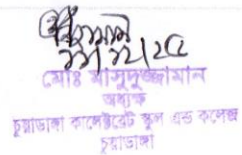 ১১/১২/২৫
মোঃ মাসুদুজ্জামান
অধ্যক্ষ
চুয়াডাঙ্গা কালেক্টরেট স্কুল এন্ড কলেজ
চুয়াডাঙ্গা